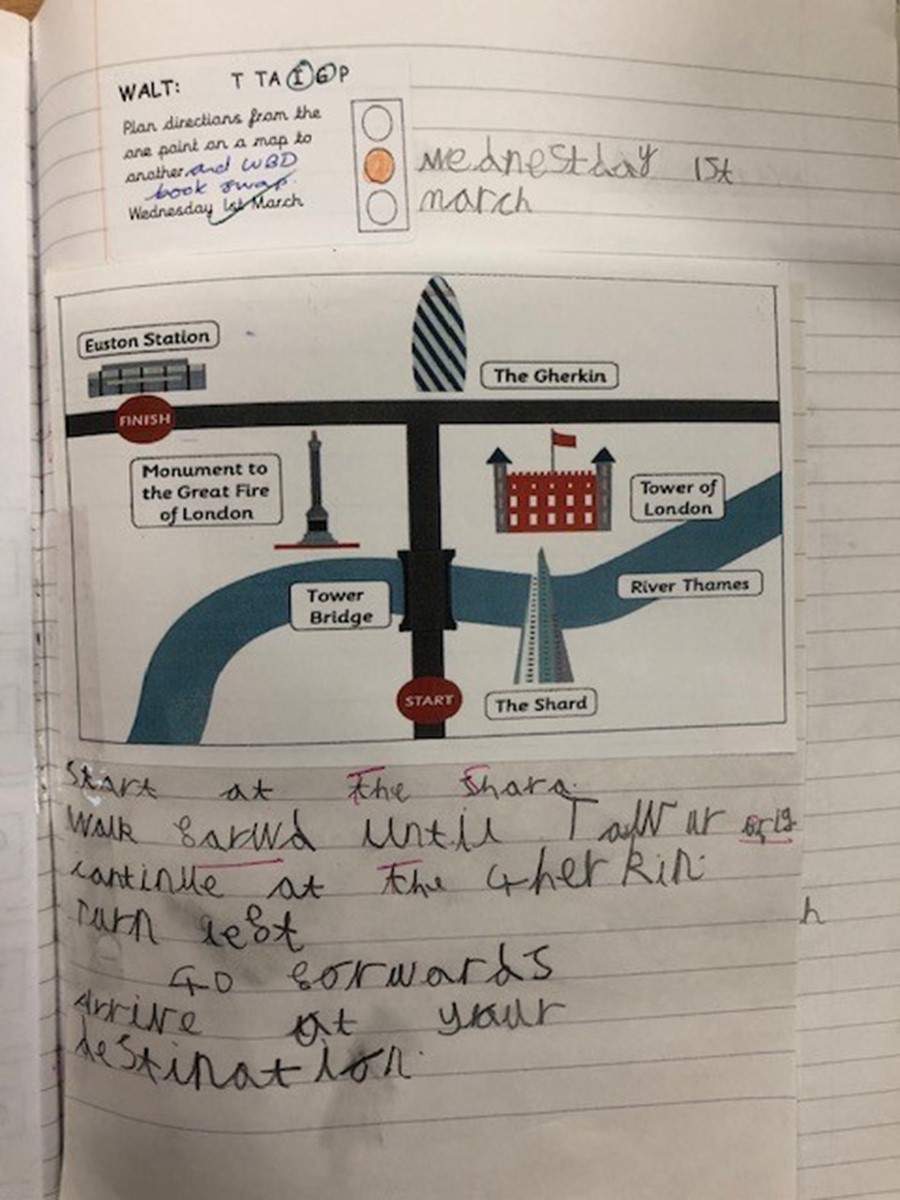 WALT: T TA I G P
Plan directions from the
one point on a map to
another and WBD
book swap.
Wednesday 1st March
Wednestday 1st
march
Euston Station
The Gherkin
FINISH
Monument to
the Great Fire
of London
Tower of
London
Tower
Bridge
River Thames
START
The Shard
Start at The Shard.
Walk forwd until Towur
continue at The Gherkin.
Turn left
h
Go forwards
Arrive at your
destination.